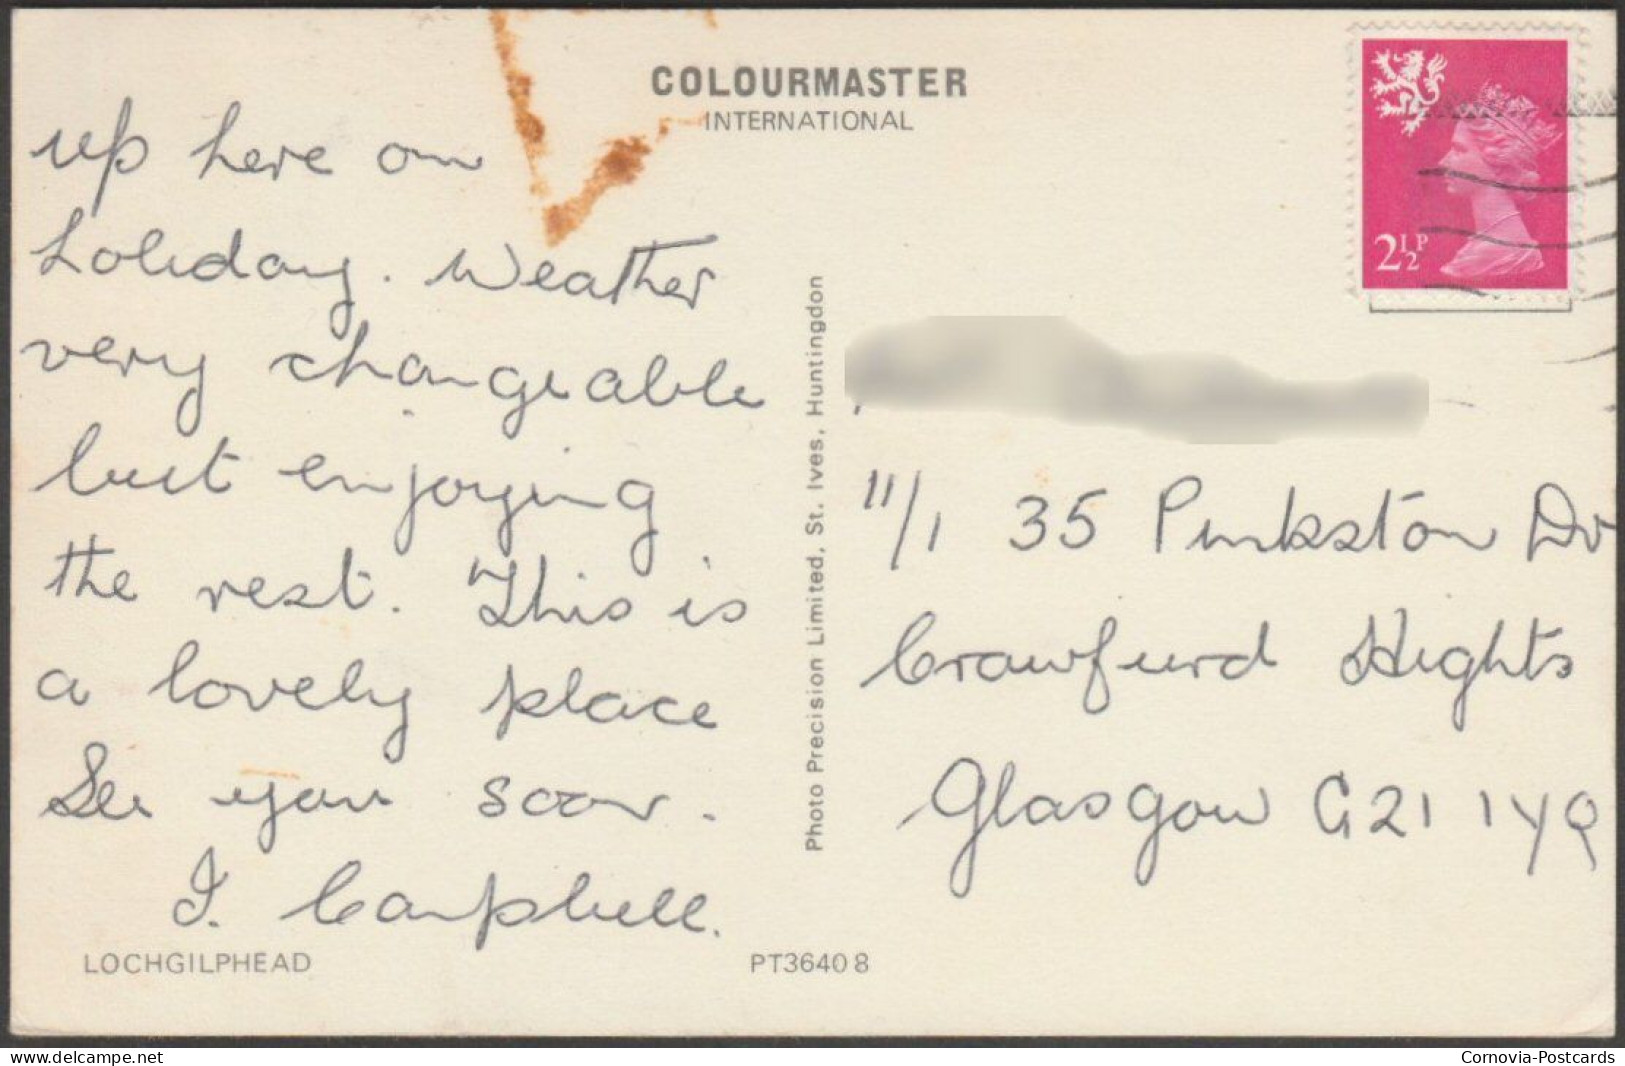 COLOURMASTER
INTERNATIONAL
2½P
up here on
holiday. Weather
very changeable
but enjoying
the rest. This is
a lovely place
See you soon.
I. Campbell.
LOCHGILPHEAD
PT36408
Photo Precision Limited, St. Ives, Huntingdon
11/1 35 Pinkston Dr
Crawfurd Hights
Glasgow G21 1YQ
delcampe.net
Cornovia-Postcards